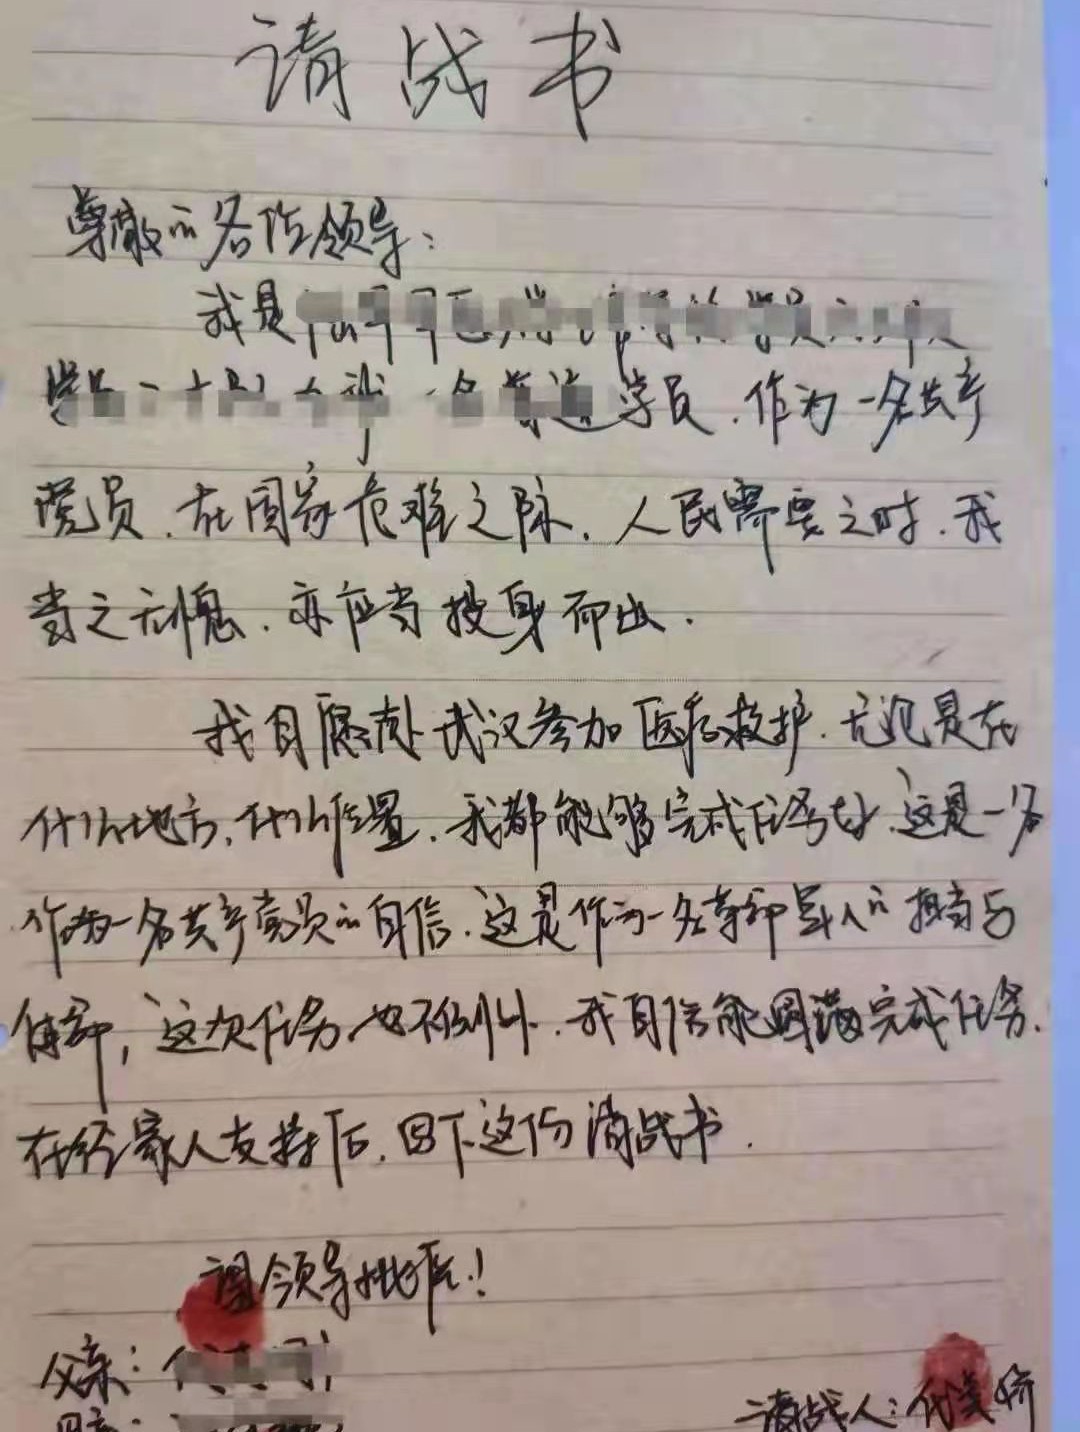 请战书
尊敬的各位领导：
我是
学员，作为一名共产
党员，在国家危难之际，人民需要之时，我
当之无愧，亦应当挺身而出。
我自愿赴武汉参加医疗救护，无论是在
什么地方，什么位置，我都能够完成任务，这是一名
作为一名共产党员的自信，这是作为一名革命军人的担当与
使命，这次任务也不例外，我自信能圆满完成任务。
在经家人支持后，写下这份请战书。
望领导批准！
父亲：
母亲：
请战人：